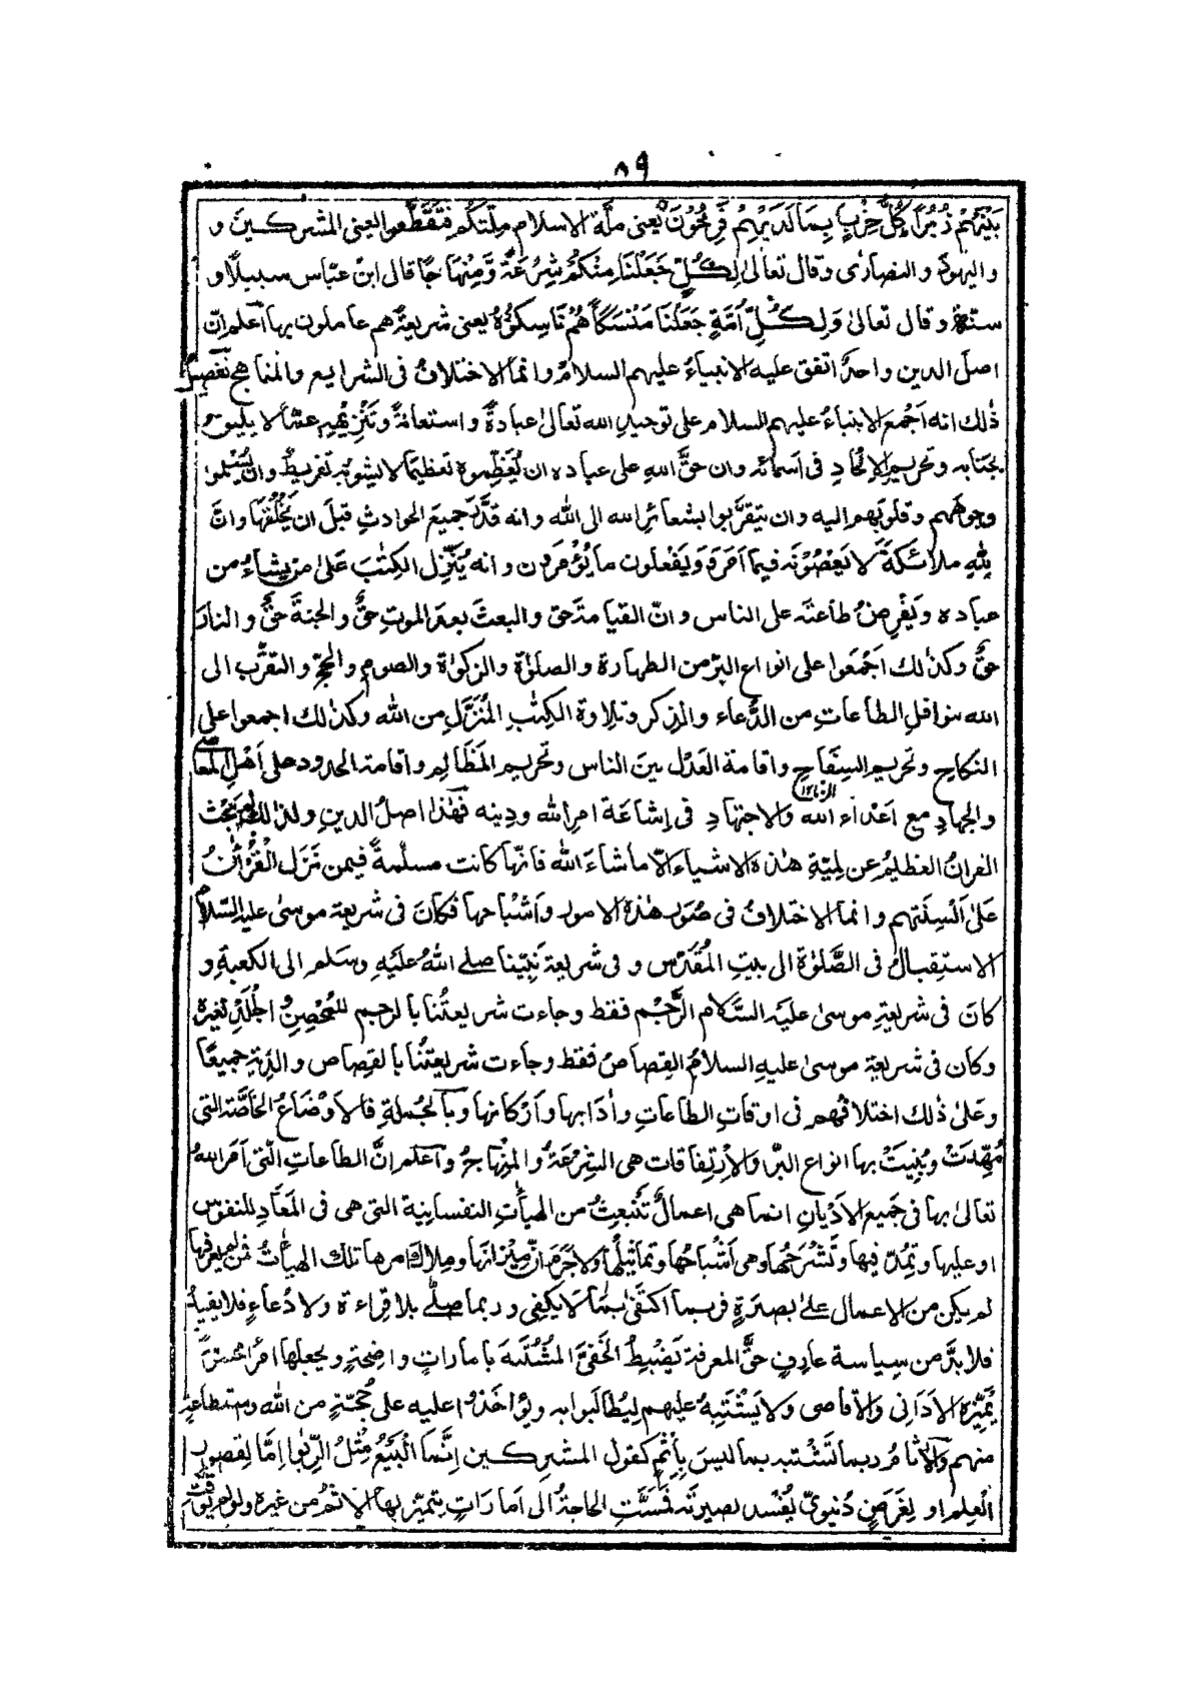 ٨٩
بَيْنَهُمْ زُبُرًا كُلُّ حِزْبٍ بِمَا لَدَيْهِمْ فَرِحُوْنَ يعنى ملّة الاسلام مِلّتكُم فتَقطَّعوا يعنى المشركينَ و
واليهودَ والنصارٰى وقال تعالىٰ لِكُلٍّ جَعَلْنَا مِنْكُمْ شِرْعَةً وَّمِنْهَاجًا قال ابن عبّاس سبيلًا و
سنة وقال تعالىٰ وَلِكُلِّ اُمَّةٍ جَعَلْنَا مَنْسَكًا هُمْ نَاسِكُوْهُ يعنى شريعةً هم عاملون بها اعلم انّ
اصلَ الدين واحدٌ اتفق عليه الانبياءُ عليهم السلامُ وانما الاختلافُ فى الشرايع والمناهج تفصيلُ
ذٰلك انه اَجْمع الانبياءُ عليهم السلام على توحيدِ الله تعالىٰ عبادةً واستعانةً وتَنْزِيْهِهِ عمّا لا يليق
بجنابه وتحريمِ الالحادِ فى اسمائه وان حقَّ اللهِ على عباده ان يُعَظّموه تعظيمًا لا يشوبُه تفريطٌ وان يُسْلِموا
وجوهَهم وقلوبَهم اليه وان يتقرَّبوا بشعائرِ الله الى الله وانه قدَّر جميعَ الحوادثِ قبلَ ان يَّخْلُقَها وانَّ
لِلّٰهِ ملائكةً لا يَعْصُوْنَه فيما اَمَرَ وَيَفْعلون ما يُؤْمَرُون وانه يُنَزِّل الكِتٰبَ عَلىٰ من يشاءُ من
عباده ويَفْرِضُ طاعتَه على الناس وانّ القيامةَ حقٌ والبعثَ بعدَ الموتِ حقٌّ والجنةَ حقٌّ والنارَ
حقٌّ وكذٰلك اَجْمَعوا على انواعِ البِرّ من الطهارة والصلوٰة والزكوٰة والصوم والحجِّ والتقرُّبِ الى
الله بنوافلِ الطاعاتِ من الدُّعاء والذِكر وتلاوة الكِتٰبِ المُنَزَّلِ من الله وكذٰلك اجمعوا على
النكاحِ وتحريمِ السِفَاحِ واقامة العَدْلِ بينَ الناس وتحريمِ المَظَالِم واقامة الحدود على اَهْلِ المعاصى
الزنا ١٢
والجهادِ مع اَعْداء الله والاجتهادِ فى اِشاعَة امرِ الله ودينِه فهٰذا اصلُ الدين ولذٰلك لم يَبْحَثِ
القرانُ العظيمُ عن لِميّةِ هٰذه الاشياء اِلّا ما شاءَ الله فانّها كانت مسلّمةً فيمن نَزَلَ القُرْاٰنُ
عَلىٰ اَلْسِنَتِهم وانما الاختلافُ فى صُوَرِ هٰذه الامور واَشْبَاحِها فكانَ فى شريعة موسىٰ عليه السّلامُ
الاستِقبالُ فى الصَّلوٰة الى بيتِ المُقَدَّس و فى شريعة نَبِيّنا صلے اللهُ عَلَيهِ وسَلم الى الكَعبةِ و
كانَ فى شريعةِ موسىٰ عَليَه السَّلام الرَّجْم فقط وجاءت شريعتُنا بالرجم للمُحْصِنِ والجَلْدِ لغيره
وكان فى شريعة موسىٰ عليهِ السلامُ القِصاصُ فقط وجاءت شريعتُنا بالقِصاص والدِيَةِ جميعًا
وعَلىٰ ذٰلك اختلافُهم فى اوقاتِ الطاعاتِ واٰدابِها واَرْكانِها وبالجُملةِ فالاَوْضَاعُ الخاصّة التى
مُهِّدَتْ وبُنِيَتْ بها انواع البرّ والاِرْتِفاقات هى الشِرْعَةُ والمِنْهَاجُ واعلم انَّ الطاعاتِ الّتى اَمَرَ اللهُ
تعالىٰ بها فى جَميعِ الاَدْيانِ انما هى اعمالٌ تَنْبعِثُ من الهيأٰتِ النفسانية التى هى فى المَعَادِ للنفوسِ
او عليها وتُمِدُّ فيها وتَشْرَحُها وهى اَشْباحُها وتماثيلُها ولا جَرَمَ انّ مِيْزانَها ومِلاكَ امرِها تلك الهيأٰتُ فمن لم يعرفْها
لم يكن من الاعمال على بصيرَةٍ فربما اكتفىٰ بما لا يَكفِى وربما صلّٰى بلا قِراءة ولا دُعاءٍ فلا يفيدُ
فلا بدَّ من سِياسة عارِفٍ حقَّ المعرفة يَضْبِطُ الخَفِىَّ المُشْتَبِهَ بأماراتٍ واضِحةٍ ويجعلُها امرًا محسوسًا
يُمَيِّزه الاَدَانى والاَقاصى ولا يَشْتَبِهُ عليهم لِيُطالَبوا به ويُؤاخَذُوا عليه على حُجّةٍ من الله واستطاعةٍ
منهم والآثامُ ربما تَشْتبه بما ليسَ بِاثْمٍ كقول المشركين اِنَّما الْبَيْعُ مِثْلُ الرِّبٰوا اِمّا لِقصورِ
العِلم او لِغَرَضٍ دُنيوِىّ يُفْسُد بصيرتَه فمسَّتِ الحاجةُ الى اَمَارَاتٍ يتميّز بها الاثمُ من غيره ولو لم يُوَقَّتْ